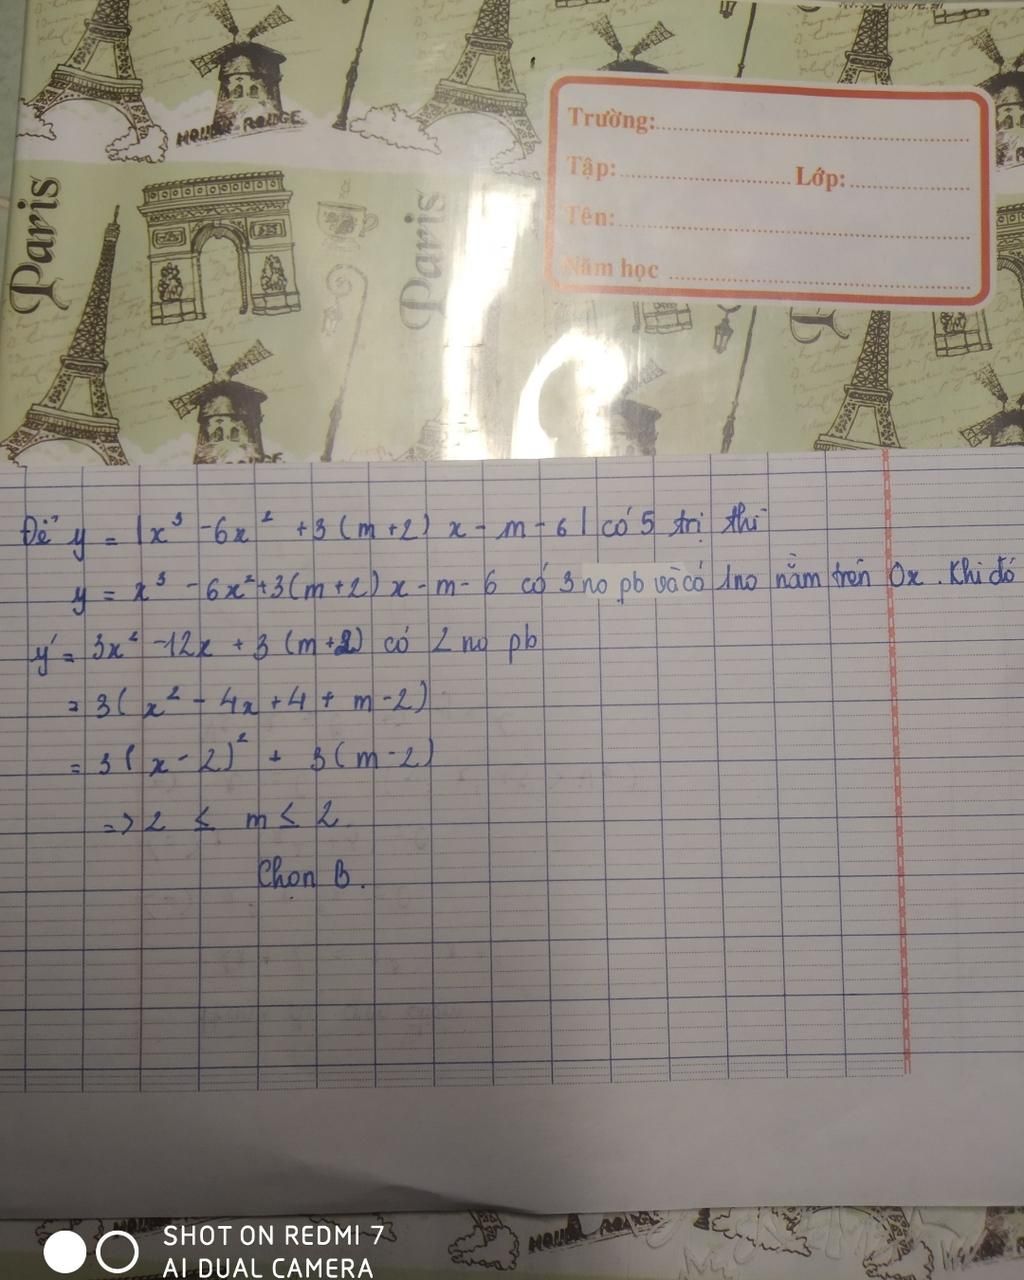 MOULIN ROUGE
Paris
Paris
Trường:
Tập: Lớp:
Tên:
Năm học
Để y = |x³ - 6x² + 3(m+2)x - m - 6| có 5 trị thì
y = x³ - 6x² + 3(m+2)x - m - 6 có 3 no pb và có 1no nằm trên Ox. Khi đó
y' = 3x² - 12x + 3(m+2) có 2 no pb
= 3(x² - 4x + 4 + m - 2)
= 3(x - 2)² + 3(m - 2)
=> 2 ≤ m ≤ 2
Chọn B.
SHOT ON REDMI 7
AI DUAL CAMERA